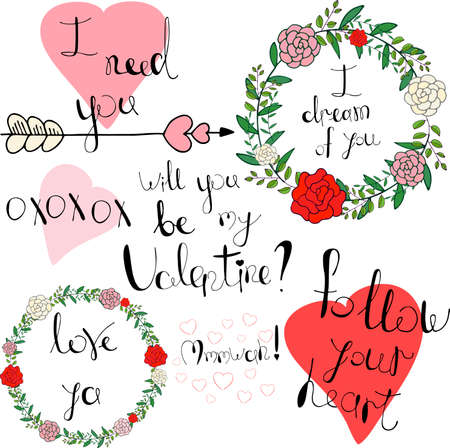 I
need
you
I
dream
of you
OXOXOX
will you
be my
Valentine?
love
ya
Mmmwah!
follow
your
heart